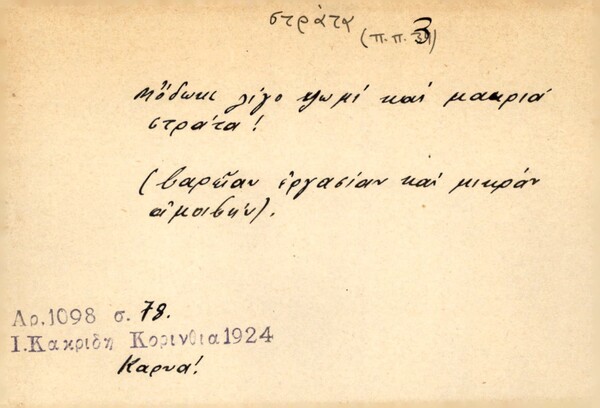 στράτα
(π.π. 3)
Μὄδωκε λίγο ψωμί καί μακριά
στράτα!
(βαρεῖαν ἐργασίαν καί μικράν
ἀμοιβήν).
Αρ.1098 σ. 78.
Ι.Κακριδη Κορινθια 1924
Καρυά!